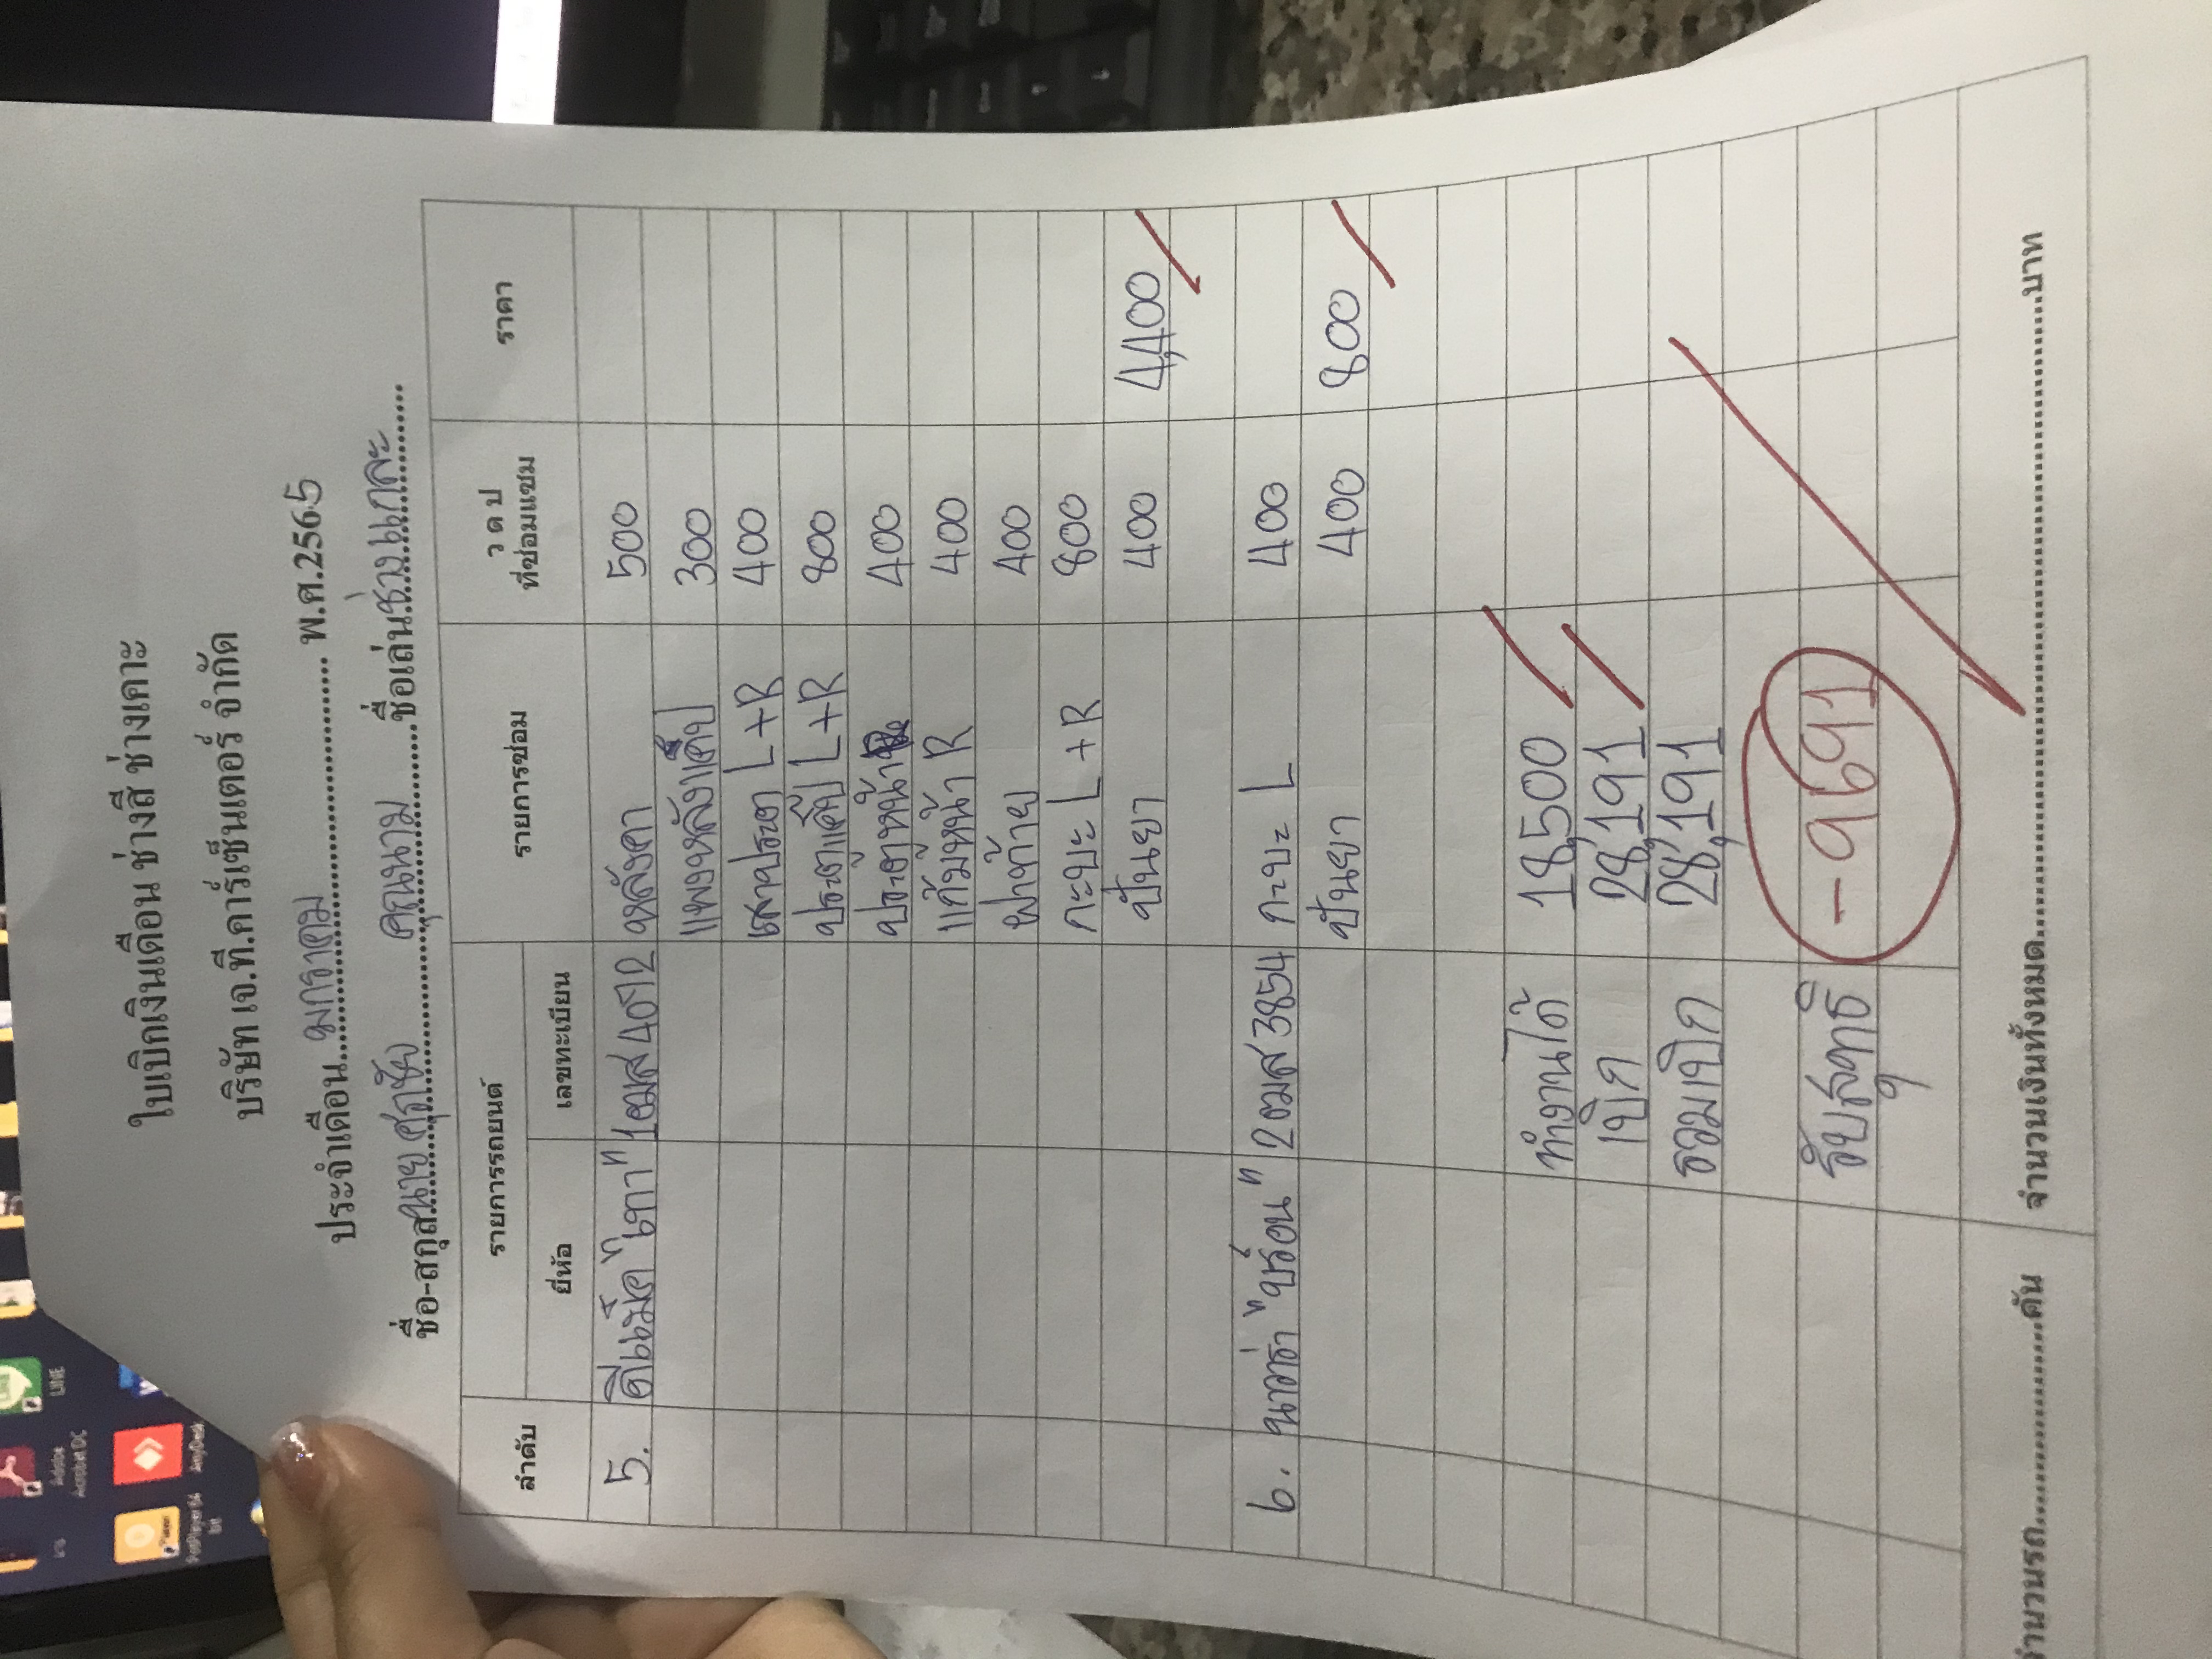 ใบเบิกเงินเดือน ช่างสี ช่างเคาะ
บริษัท เจ.ที.คาร์เซ็นเตอร์ จำกัด
ประจำเดือน มกราคม พ.ศ.2565
ชื่อ-สกุล นาย ศุภชัย คุณนาม ชื่อเล่น ช่างแกละ
ลำดับ รายการรถยนต์ รายการซ่อม ว ด ป ที่ซ่อมแซม ราคา
ยี่ห้อ เลขทะเบียน
5. ดีแม็ค "เทา" 1ฒส4072 หลังคา 500
แผงหลังแค็ป 300
เสาประตู L+R 400
ประตูแค็ป L+R 800
ประตูหน้า 400
แก้มหน้า R 400
ฝาท้าย 400
กะบะ L+R 800
ปั่นยา 400 4,400
6. นาวาร่า "บรอน" 2ฒส3854 กะบะ L 400
ปั่นยา 400 800
ทำงานได้ 18,500
เบิก 28,191
รวมเบิก 28,191
รับสุทธิ -9691
จำนวนรถ คัน จำนวนเงินทั้งหมด บาท
LINE
Adobe Acrobat DC
AnyDesk
PotPlayer 64 bit